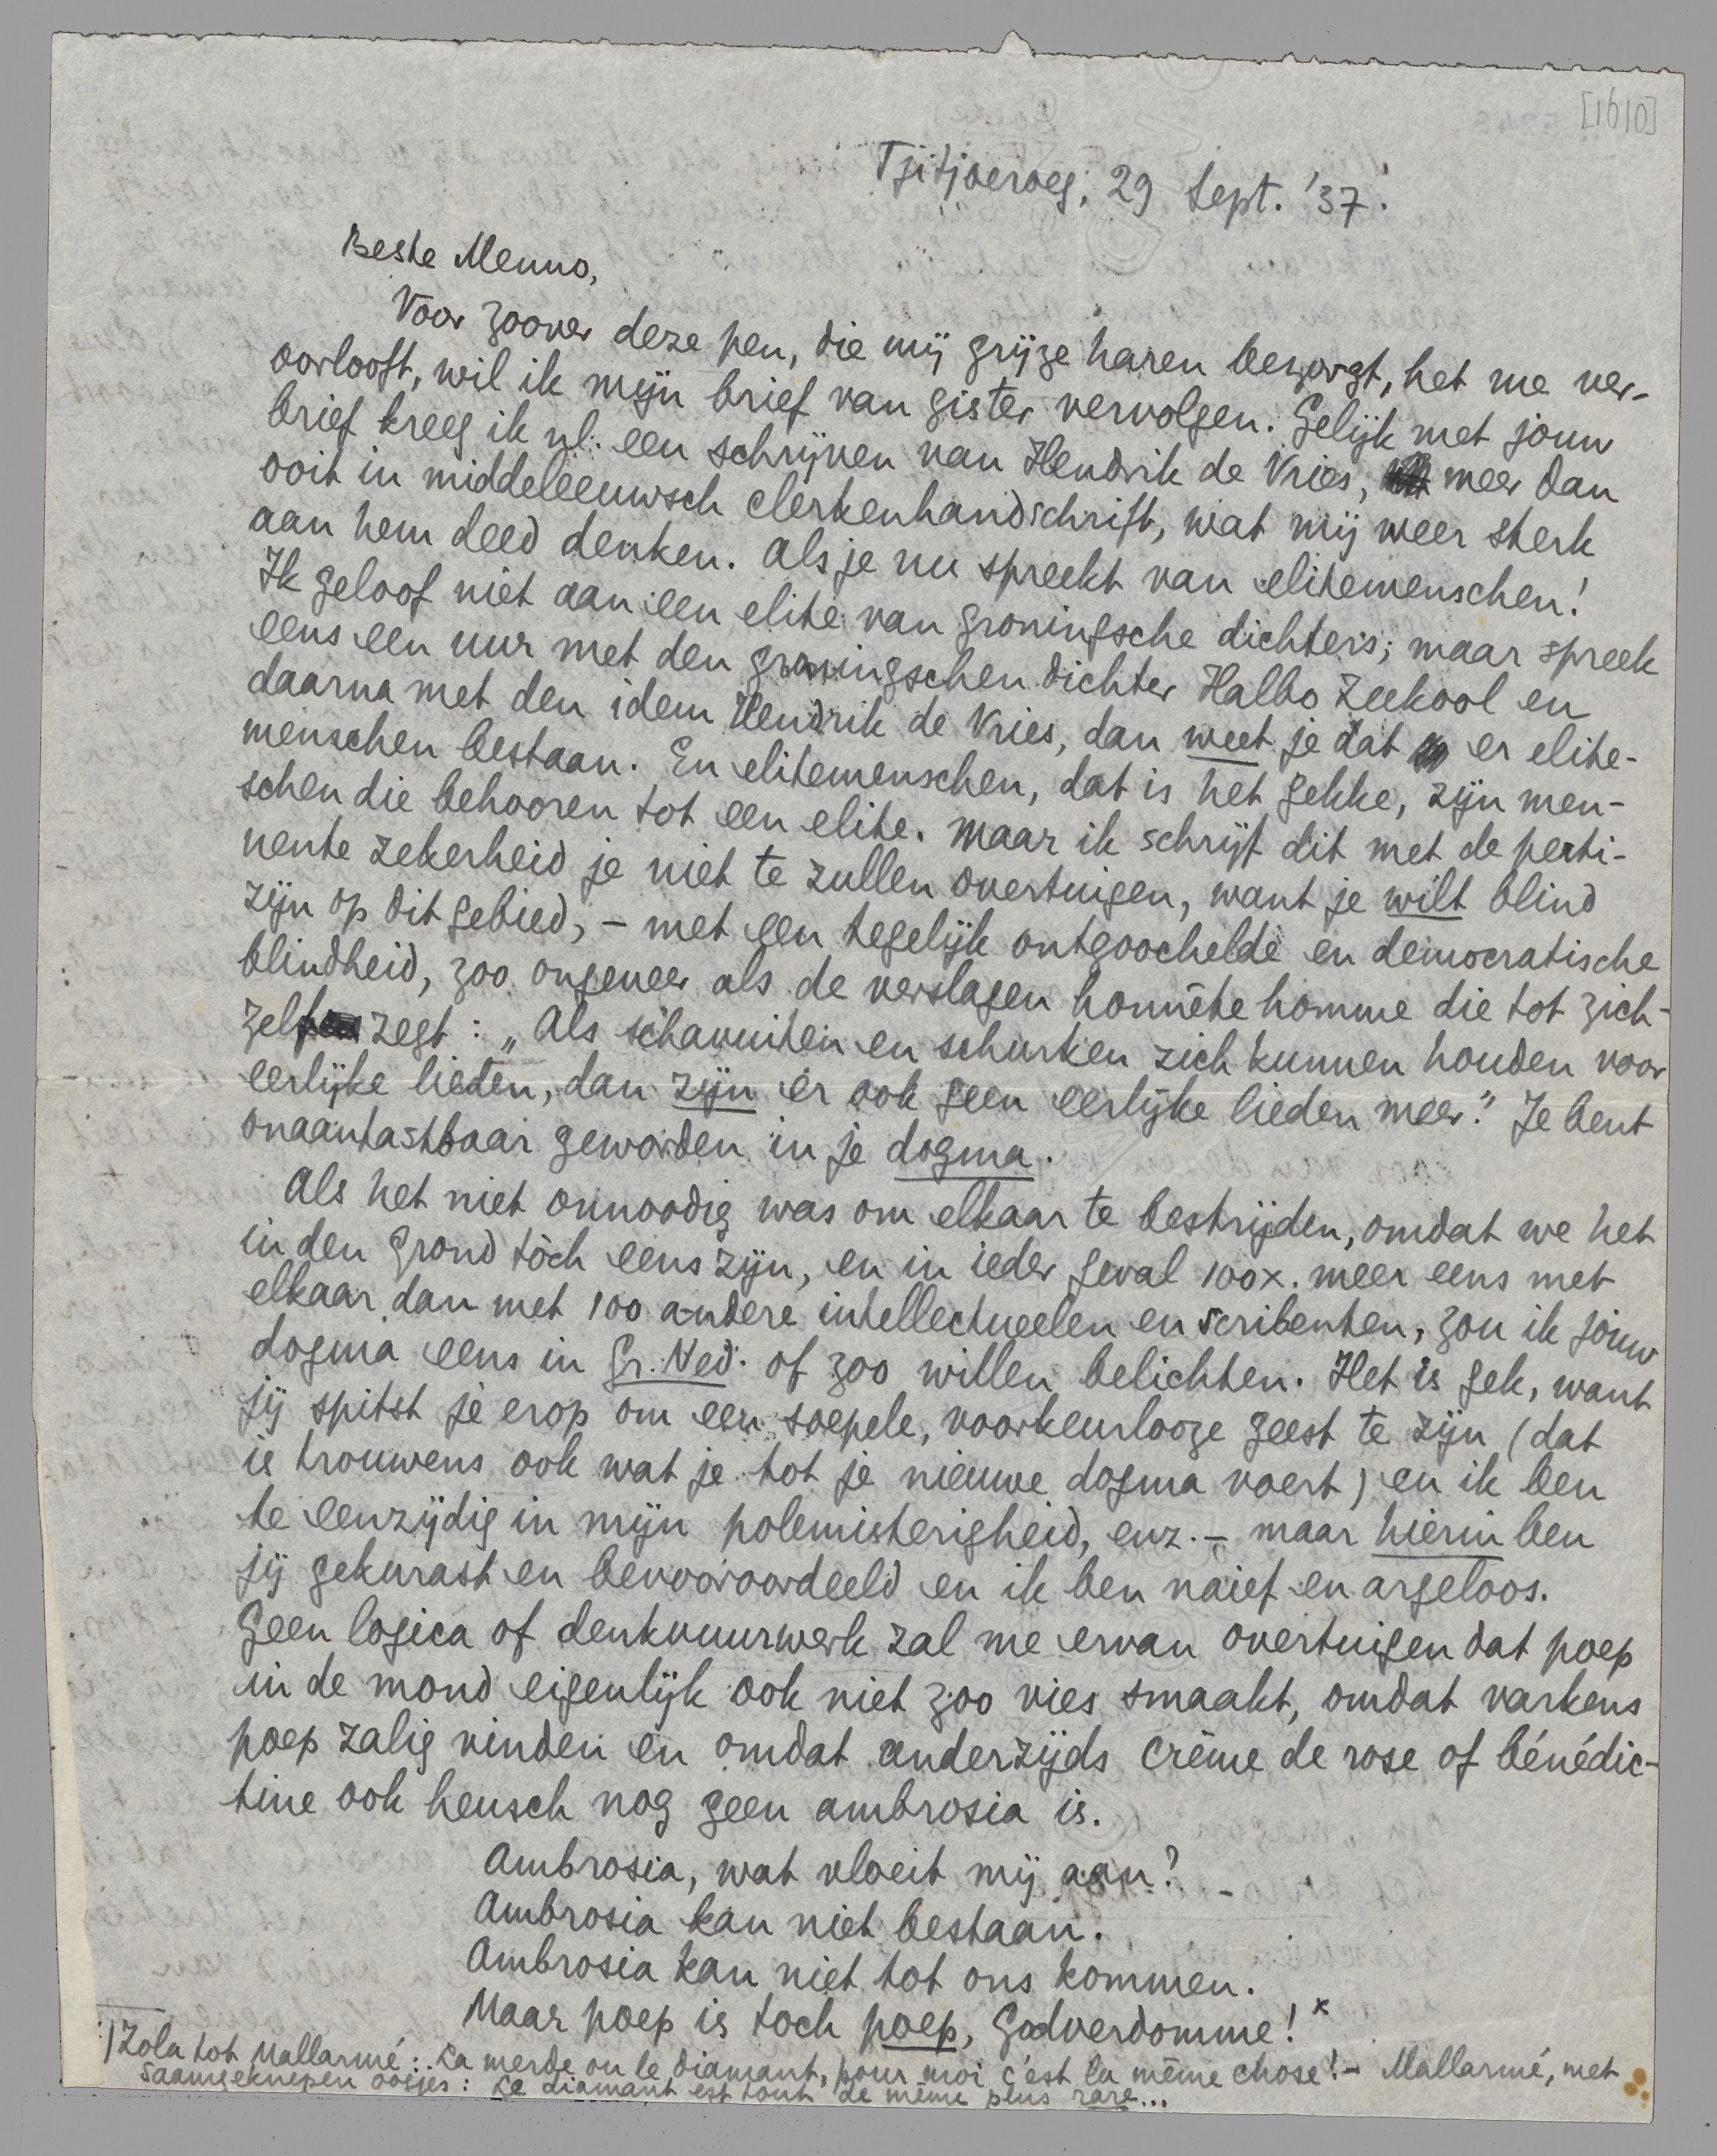 [1610]
Tjitjoeroeg, 29 Sept. '37.
Beste Menno,
Voor zoover deze pen, die mij grijze haren bezorgt, het me ver-
oorlooft, wil ik mijn brief van gister vervolgen. Gelijk met jouw
brief kreeg ik nl. een schrijven van Hendrik de Vries, meer dan
ooit in middeleeuwsch clerkenhandschrift, wat mij weer sterk
aan hem deed denken. Als je nu spreekt van elitemenschen!
Ik geloof niet aan een elite van groningsche dichters; maar spreek
eens een uur met den groningschen dichter Halbo Zeekool en
daarna met den idem Hendrik de Vries, dan weet je dat er elite-
menschen bestaan. En elitemenschen, dat is het gekke, zijn men-
schen die behooren tot een elite. Maar ik schrijf dit met de perti-
nente zekerheid je niet te zullen overtuigen, want je wilt blind
zijn op dit gebied, – met een tegelijk ontgoochelde en democratische
blindheid, zoo ongeveer als de verslagen honnête homme die tot zich-
zelf zegt: „Als schavuiten en schurken zich kunnen houden voor
eerlijke lieden, dan zijn er ook geen eerlijke lieden meer." Je bent
onaantastbaar geworden in je dogma.
Als het niet onnoodig was om elkaar te bestrijden, omdat we het
in den grond tòch eens zijn, en in ieder geval 100 x. meer eens met
elkaar dan met 100 andere intellectueelen en scribenten, zou ik jouw
dogma eens in Gr. Ned. of zoo willen belichten. Het is gek, want
jij spitst je erop om een soepele, voorkeurlooze geest te zijn (dat
is trouwens ook wat je tot je nieuwe dogma voert) en ik ben
te eenzijdig in mijn polemisterigheid, enz. – maar hierin ben
jij gekurast en bevooroordeeld en ik ben naief en argeloos.
Geen logica of denkvuurwerk zal me ervan overtuigen dat poep
in de mond eigenlijk ook niet zoo vies smaakt, omdat varkens
poep zalig vinden en omdat anderzijds crême de rose of bénédic-
tine ook heusch nog geen ambrosia is.
Ambrosia, wat vloeit mij aan?
Ambrosia kan niet bestaan.
Ambrosia kan niet tot ons kommen.
Maar poep is toch poep, Godverdomme! x
) Zola tot Mallarmé: La merde ou le diamant, pour moi c'est la même chose! – Mallarmé, met
saamgeknepen oogjes: Le diamant est tout de même plus rare...